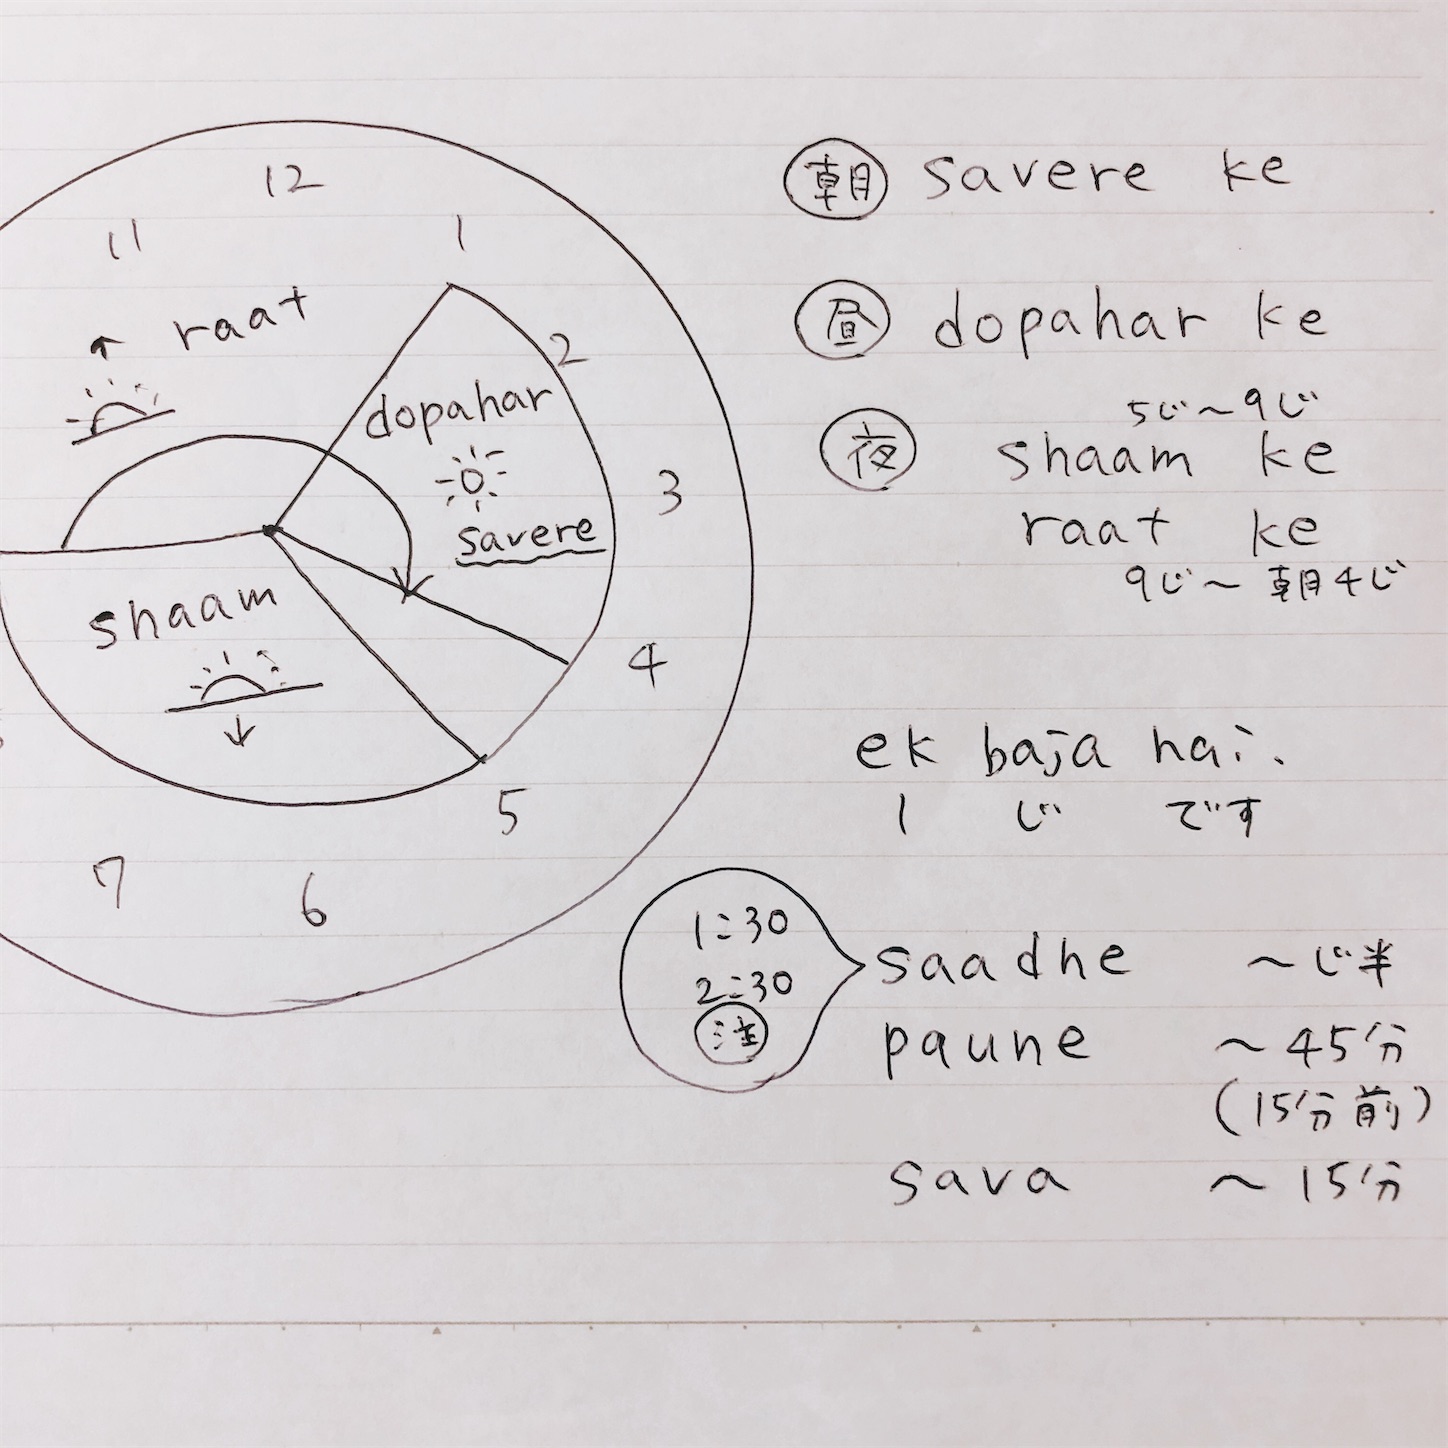 12
11
1
raat
2
dopahar
3
savere
shaam
4
5
7
6
朝 savere ke
昼 dopahar ke
5じ〜9じ
夜 shaam ke
raat ke
9じ〜朝4じ
ek baja hai.
1 じ です
1:30
2:30
注
saadhe 〜じ半
paune 〜45分
(15分前)
sava 〜15分